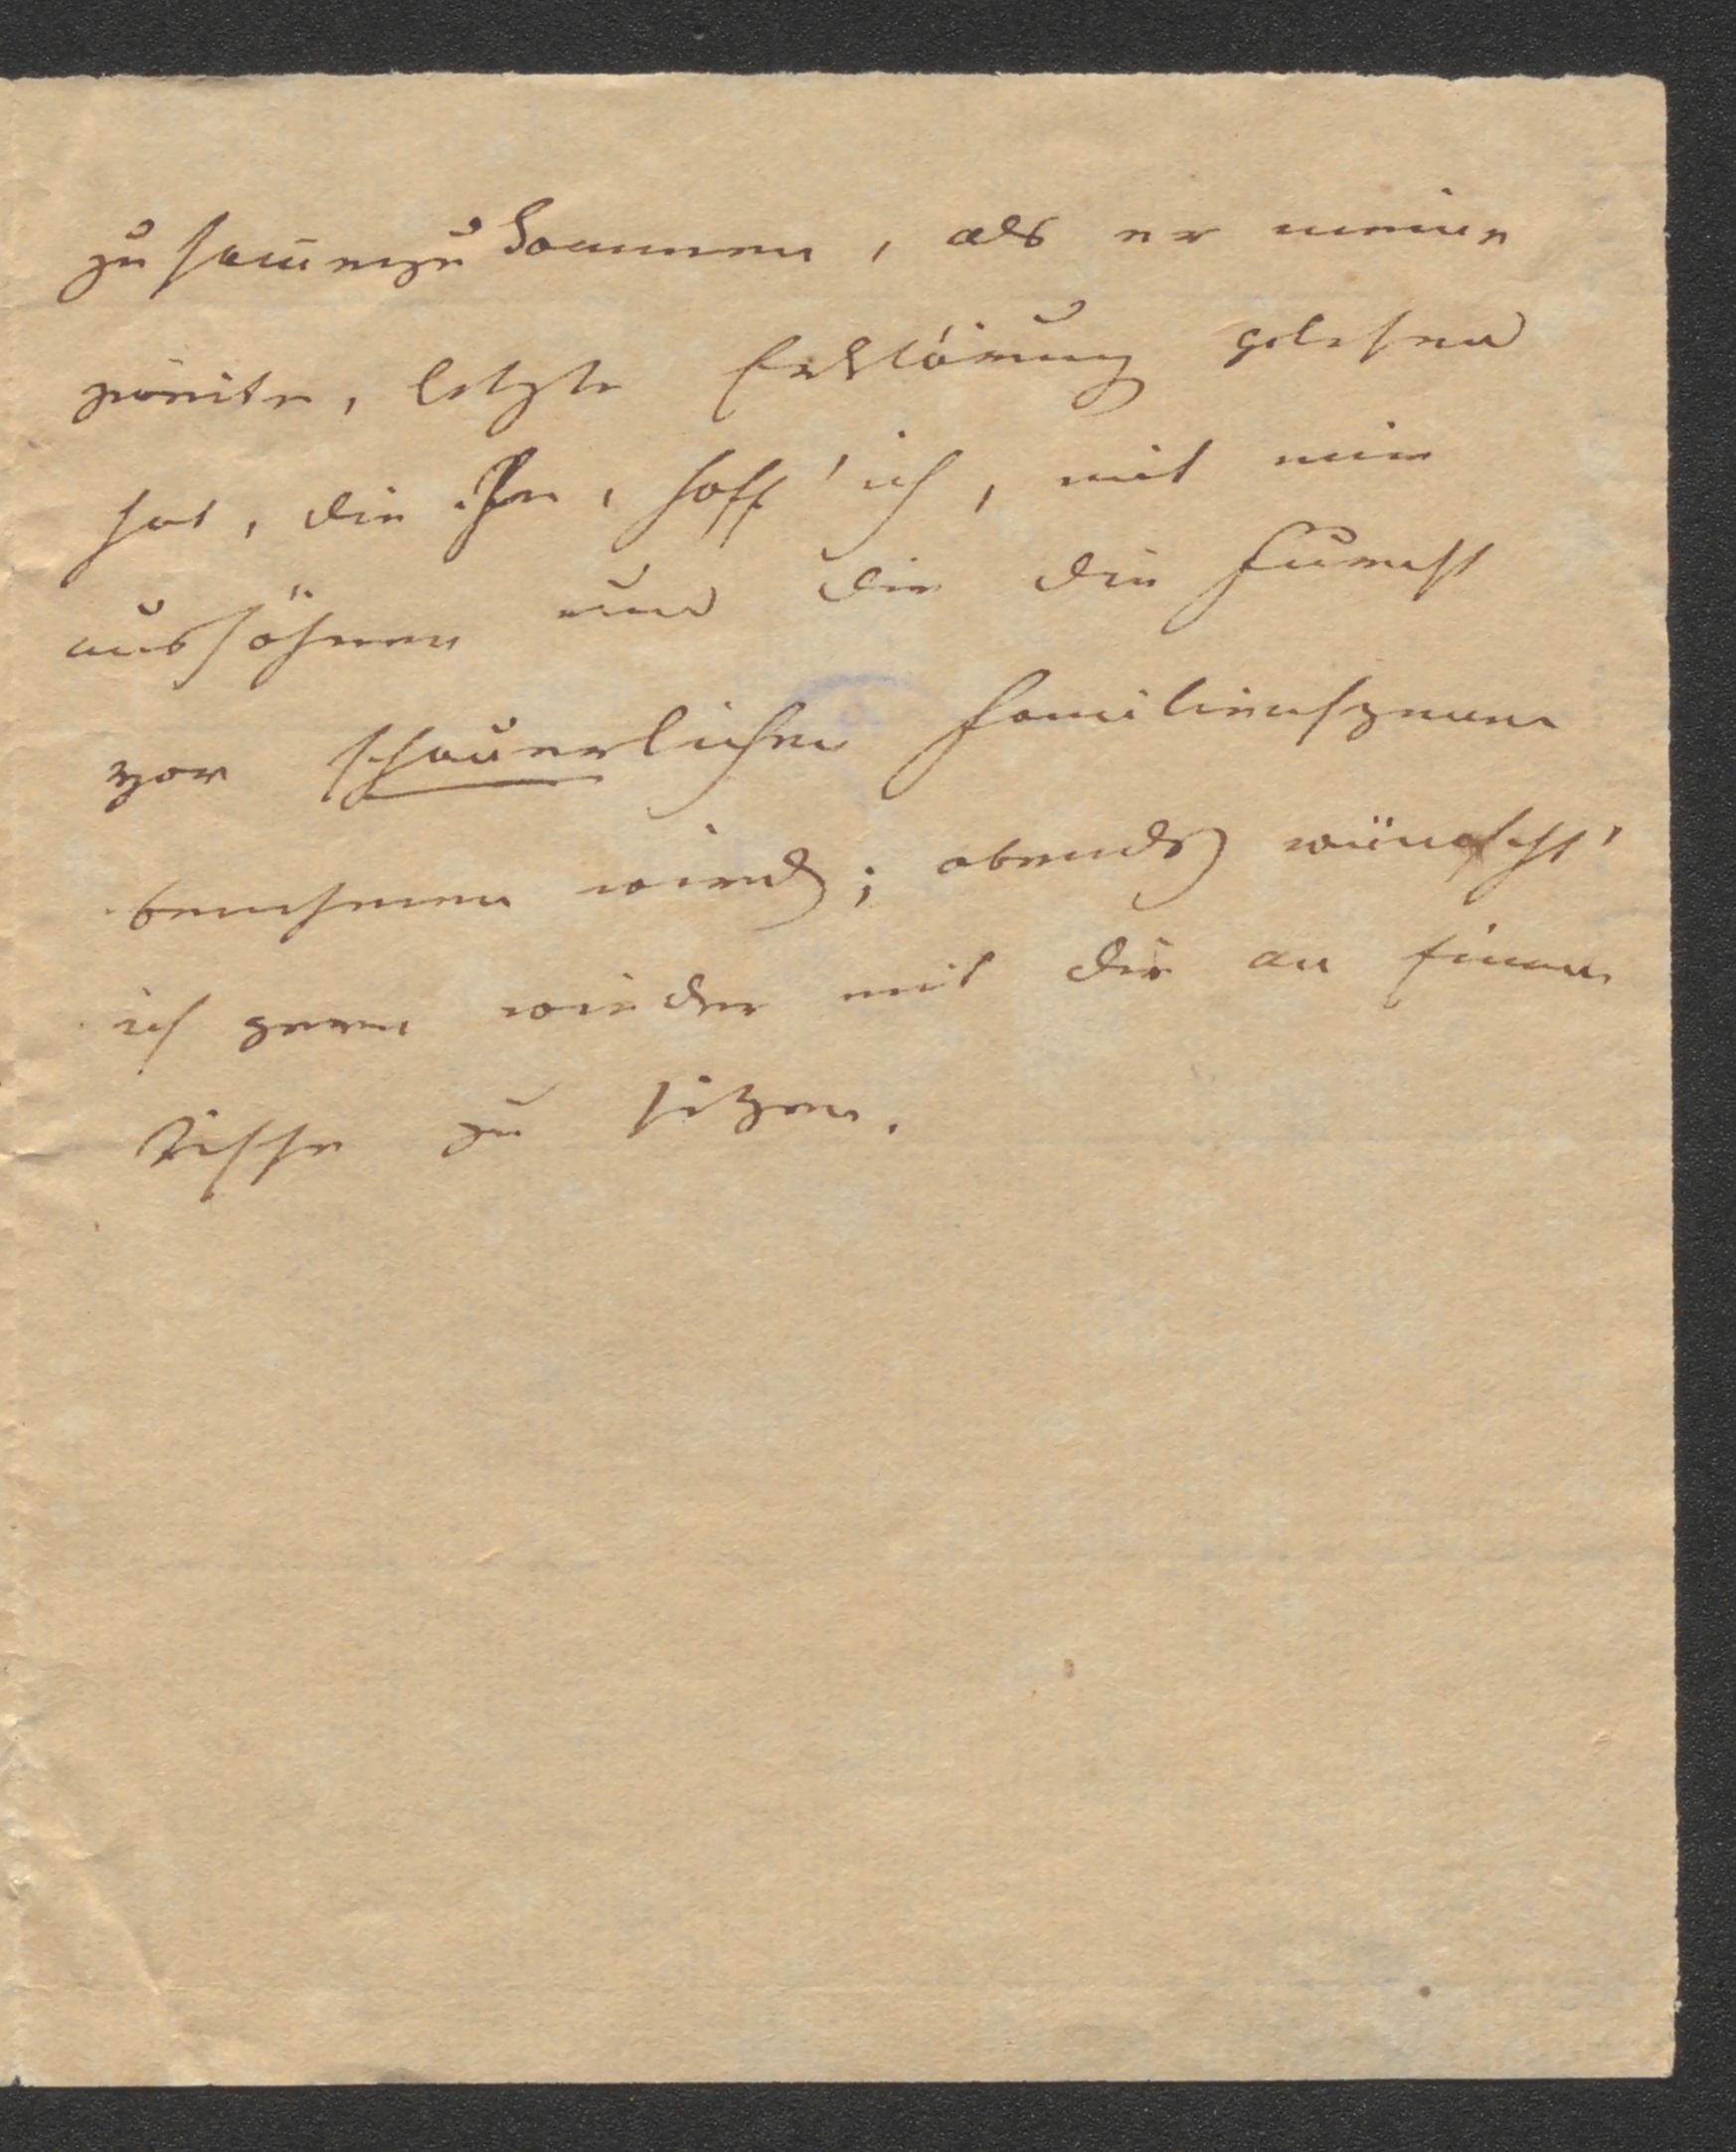 zusam̅enzukommen, als er meine
zweite, letzte Erklärung gelesen
hat, die ihn, hoff' ich, mit mir
aussöhnen und dir die Furcht
vor schauerlichen Familienszenen
benehmen wird; abends wünscht'
ich gern wieder mit dir an Einem
Tische zu sitzen.